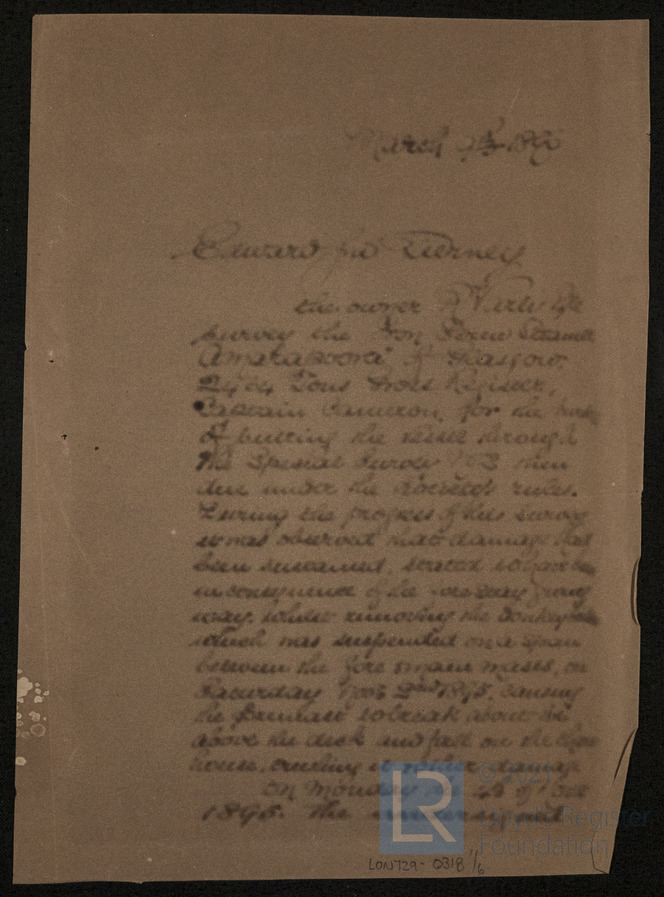 March 1896
Edward Tierney
the owner
survey the Iron Screw Steamer
Amarapoora of Glasgow,
Tons Gross Register,
Captain Cameron, for the
of putting the vessel through
the Special Survey No 3 then
due under the Society's rules.
During the progress of this survey
it was observed that damage had
been sustained, stated to have been
in consequence of the fore stay giving
way, whilst removing the donkey
which was suspended on a span
between the fore & main masts, on
Saturday Novr 2nd 1895, causing
the foremast to break about
above the deck and fall on the
house, crushing it & other damage
On Monday the 4th of Novr
1895. the undersigned
LR
© 2021
Lloyd's Register
Foundation
LON729-0318/6